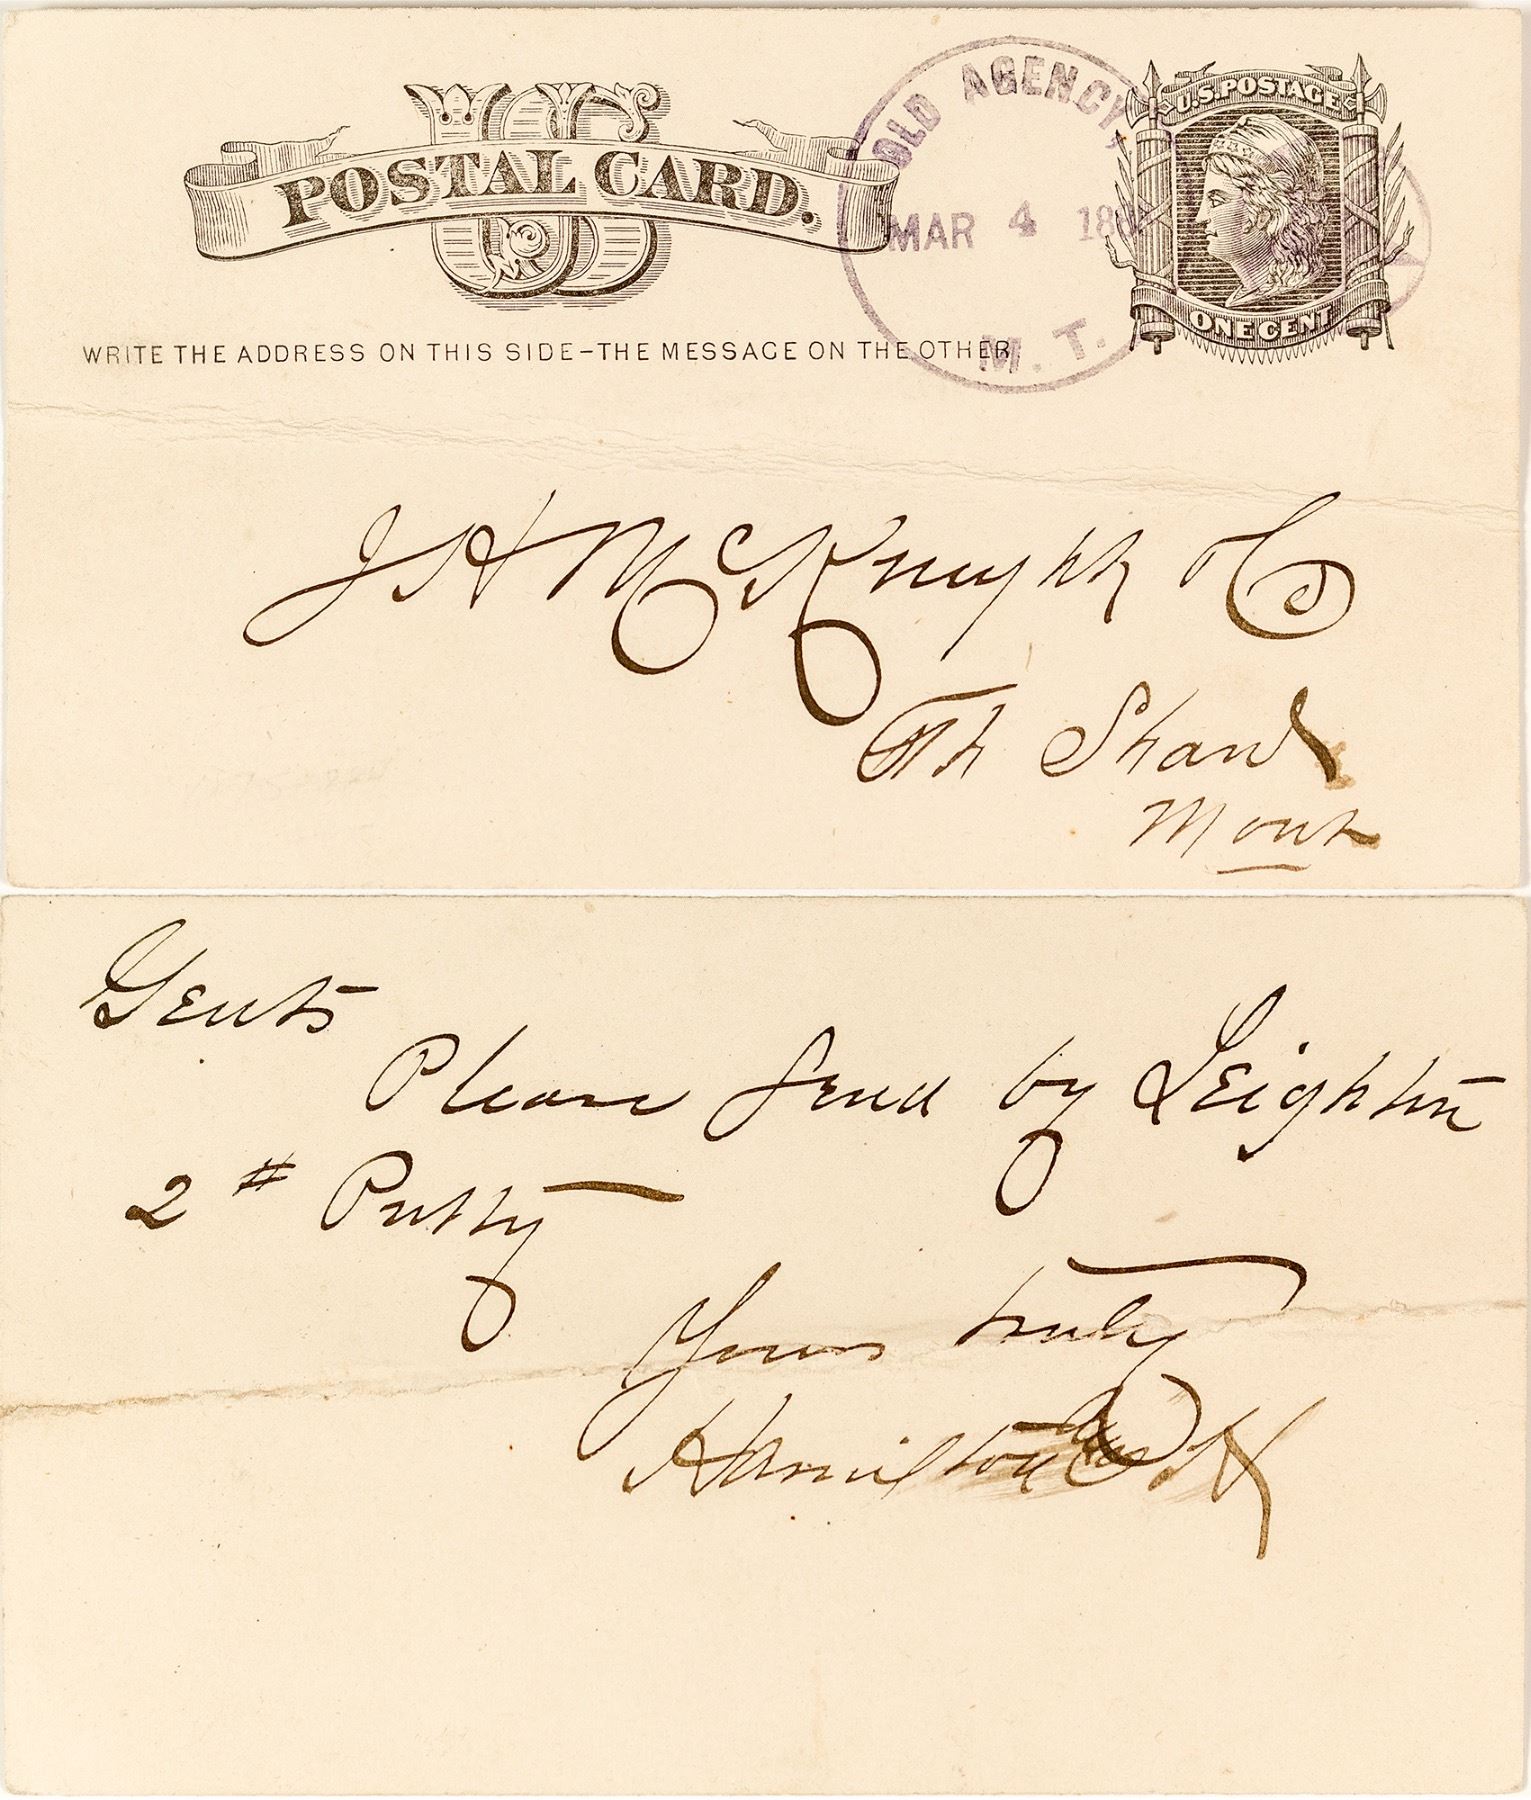 US
POSTAL CARD.
WRITE THE ADDRESS ON THIS SIDE–THE MESSAGE ON THE OTHER
OLD AGENCY,
MAR 4 18
M. T.
U.S. POSTAGE
ONE CENT
J H McKnight & Co
Ft Shaw
Mont
Gents
Please Send by Leighton
2 # Putty
Yours truly
Hamilton & H